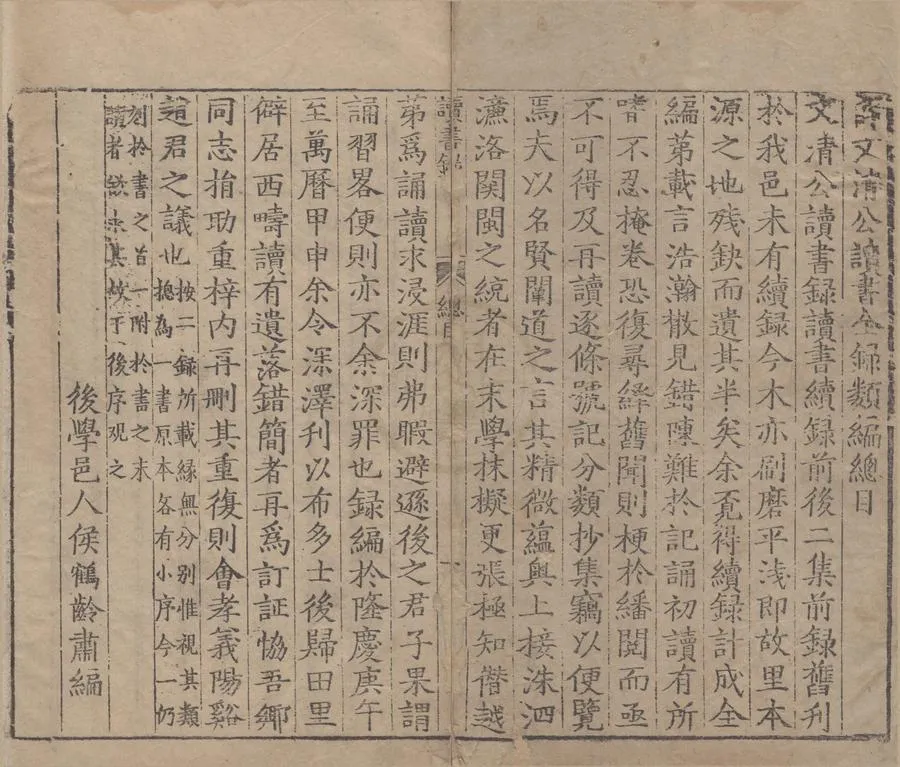 薛文清公讀書全録類編總目
文清公讀書録讀書續録前後二集前録舊刋
於我邑未有續録今木亦刷磨平淺即故里本
源之地残缺而遺其半矣余覔得續録計成全
編苐載言浩瀚散見錯陳難於記誦初讀有所
嗜不忍掩卷恐復尋繹舊聞則梗於繙閱而亟
不可得及再讀逐條號記分類抄集竊以便覽
焉夫以名賢闡道之言其精微藴奥上接洙泗
濂洛関閩之統者在末學抹擬更張極知僭越
讀書録 總目 一
苐爲誦讀求浸涯則弗暇避遜後之君子果謂
誦習畧便則亦不余深罪也録編於隆慶庚午
至萬曆甲申余令深澤刋以布多士後歸田里
僻居西疇讀有遺落錯簡者再爲訂証恊吾鄉
同志捐助重梓内再刪其重復則會孝義陽谿
趙君之議也按二録所載緑無分别惟視其類
摠為一書原本各有小序今一仍
刻於書之首一附於書之末
讀者 其 于後序观之
後學邑人侯鶴齡肅編